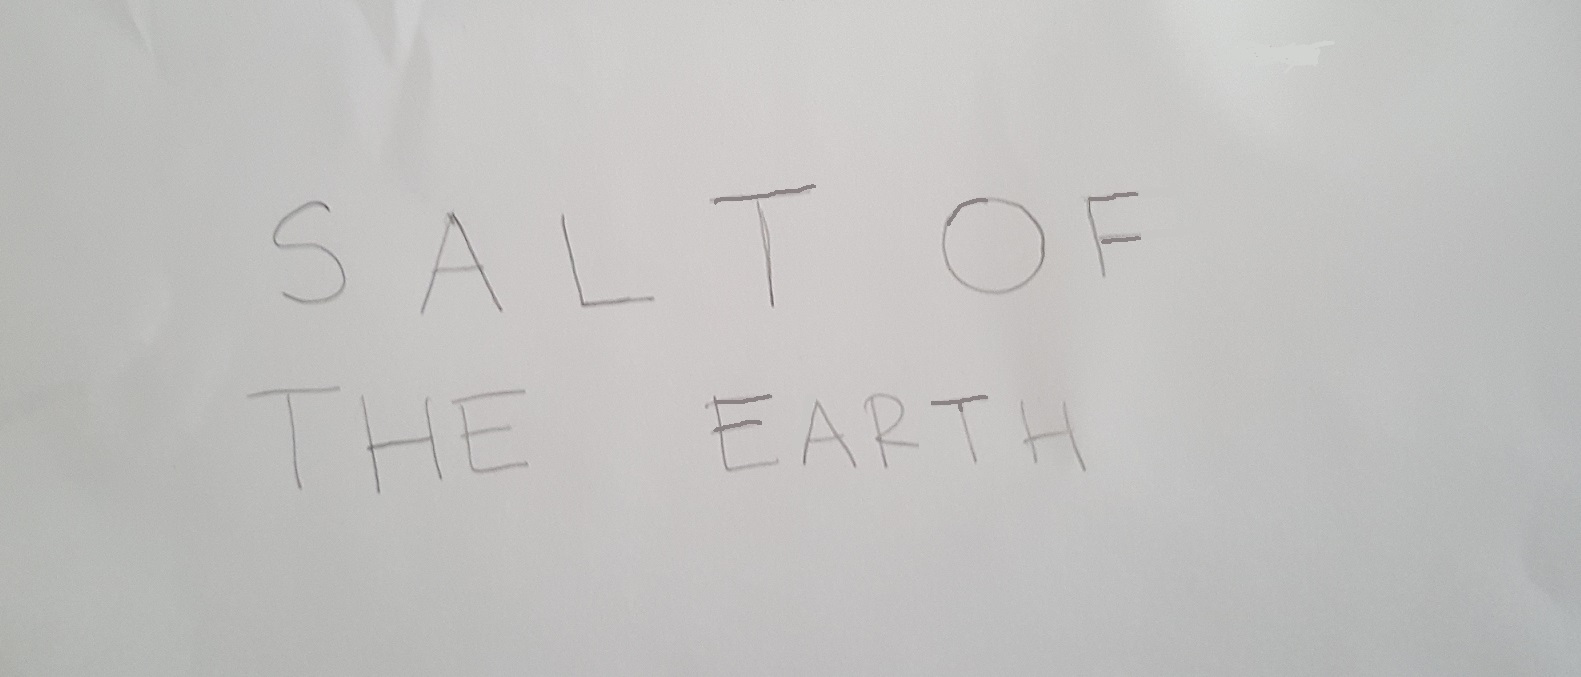 SALT OF
THE EARTH